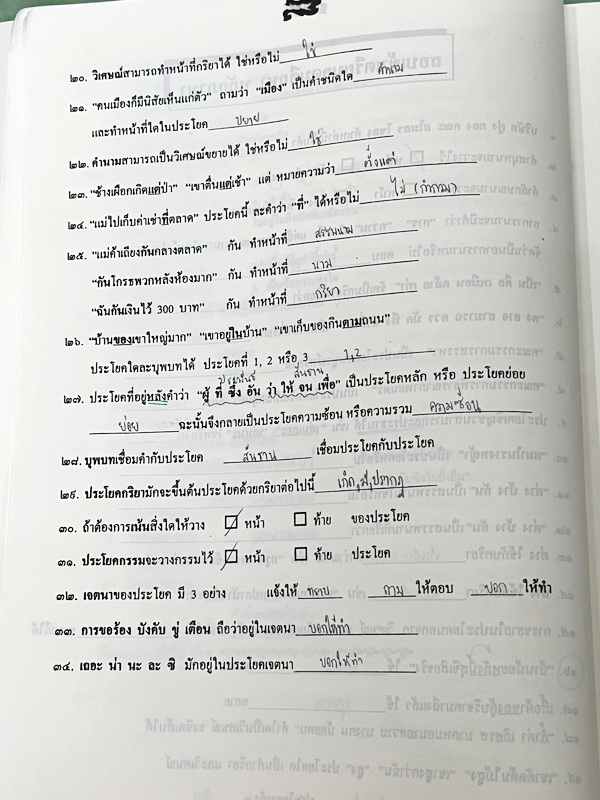 ๒๐. วิเศษณ์สามารถทำหน้าที่กริยาได้ ใช่หรือไม่ ใช่
๒๑. "คนเมืองก็มีนิสัยเห็นแก่ตัว" ถามว่า "เมือง" เป็นคำชนิดใด คำนาม
และทำหน้าที่ใดในประโยค ขยาย
๒๒. คำนามสามารถเป็นวิเศษณ์ขยายได้ ใช่หรือไม่ ใช่
๒๓. "ช้างเผือกเกิดแต่ป่า" "เขาตื่นแต่เช้า" แต่ หมายความว่า ตั้งแต่
๒๔. "แม่ไปเก็บค่าเช่าที่ตลาด" ประโยคนี้ ละคำว่า "ที่" ได้หรือไม่ ไม่ (กำกวม)
๒๕. "แม่ค้าเถียงกันกลางตลาด" กัน ทำหน้าที่ สรรพนาม
"กันโกรธพวกหลังห้องมาก" กัน ทำหน้าที่ นาม
"ฉันกันเงินไว้ 300 บาท" กัน ทำหน้าที่ กริยา
๒๖. "บ้านของเขาใหญ่มาก" "เขาอยู่ในบ้าน" "เขาเก็บของกินตามถนน"
ประโยคใดละบุพบทได้ ประโยคที่ 1, 2 หรือ 3 1,2
ประพันธ์ สันธาน
๒๗. ประโยคที่อยู่หลังคำว่า "ผู้ ที่ ซึ่ง อัน ว่า ให้ จน เพื่อ" เป็นประโยคหลัก หรือ ประโยคย่อย
ย่อย ฉะนั้นจึงกลายเป็นประโยคความซ้อน หรือความรวม ความซ้อน
๒๘. บุพบทเชื่อมคำกับประโยค สันธาน เชื่อมประโยคกับประโยค
๒๙. ประโยคกริยามักจะขึ้นต้นประโยคด้วยกริยาต่อไปนี้ เกิด,มี,ปรากฏ
๓๐. ถ้าต้องการเน้นสิ่งใดให้วาง หน้า ท้าย ของประโยค
๓๑. ประโยคกรรมจะวางกรรมไว้ หน้า ท้าย ประโยค
๓๒. เจตนาของประโยค มี 3 อย่าง แจ้งให้ ทราบ ถาม ให้ตอบ บอก ให้ทำ
๓๓. การขอร้อง บังคับ ขู่ เตือน ถือว่าอยู่ในเจตนา บอกให้ทำ
๓๔. เถอะ น่า นะ ละ ซิ มักอยู่ในประโยคเจตนา บอกให้ทำ